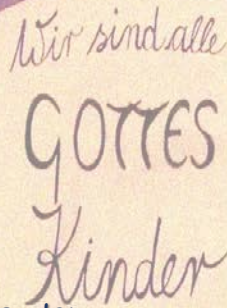 Wir sind alle
GOTTES
Kinder